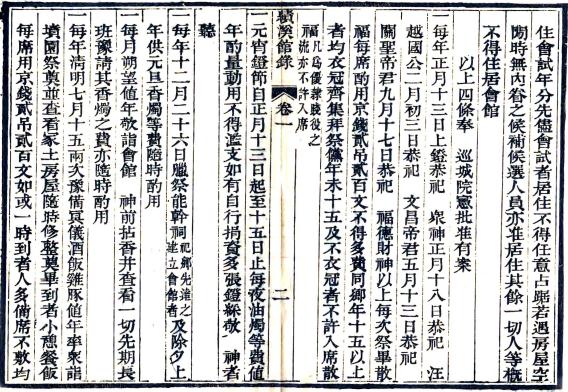 住會試年分先儘會試者居住不得任意占踞若遇房屋空
閒時無內眷之候補候選人員亦准居住其餘一切人等概
不得住居會館
以上四條奉　巡城院憲批准有案
一每年正月十三日上鐙恭祀　眾神正月十八日恭祀　汪
越國公二月初三日恭祀　文昌帝君五月十三日恭祀
關聖帝君九月十七日恭祀　福德財神以上每次祭畢散
福每席酌用京錢貳吊貳百文不得多費同鄉年十五以上
者均衣冠齊集拜祭儻年未十五及不衣冠者不許入席散
福凡爲優隸賤役之
流亦不許入席
績溪館錄　卷一　二
一元宵鐙節自正月十三日起至十五日止每夜油燭等費値
年酌量動用不得濫支如有自行捐貲多張鐙綵敬　神者
聽
每年十二月二十六日臘祭能幹祠祀鄉先達之建立會館者及除夕上
年供元旦香燭等費隨時酌用
一每月朔望値年敬詣會館　神前拈香并查看一切先期長
班豫請其香燭之費亦隨時酌用
一每年清明七月十五兩次豫備冥儀酒飯雞豚値年率衆詣
墳園祭奠並查看冢土房屋隨時修整奠畢到者小憩餐飯
每席用京錢貳吊貳百文如或一時到者人多備席不敷均